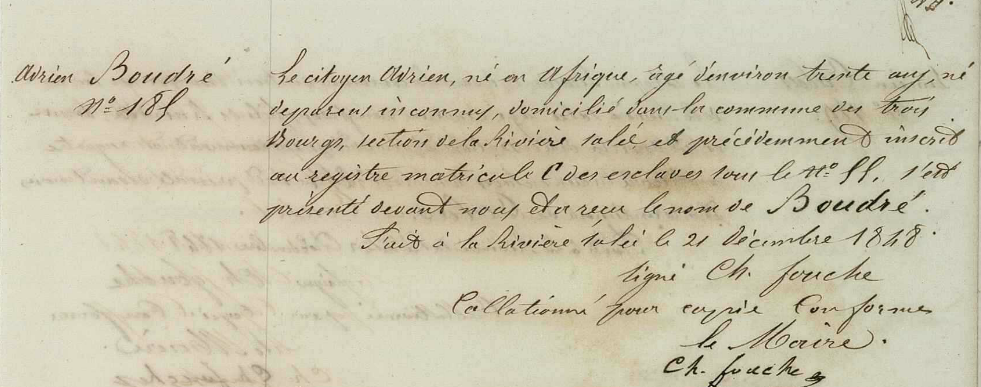 Adrien Boudré
N° 185
Le citoyen Adrien, né en Afrique, âgé d'environ trente ans, né
de parens inconnus, domicilié dans la commune des trois
Bourgs, section de la Rivière salée et précédemment inscrit
au registre matricule C des esclaves sous le N° 55, s'est
présenté devant nous et a reçu le nom de Boudré.
Fait à la Rivière salée le 21 Décembre 1848.
signé Ch. fouche
Collationné pour copie Conforme
le Maire.
Ch. fouche